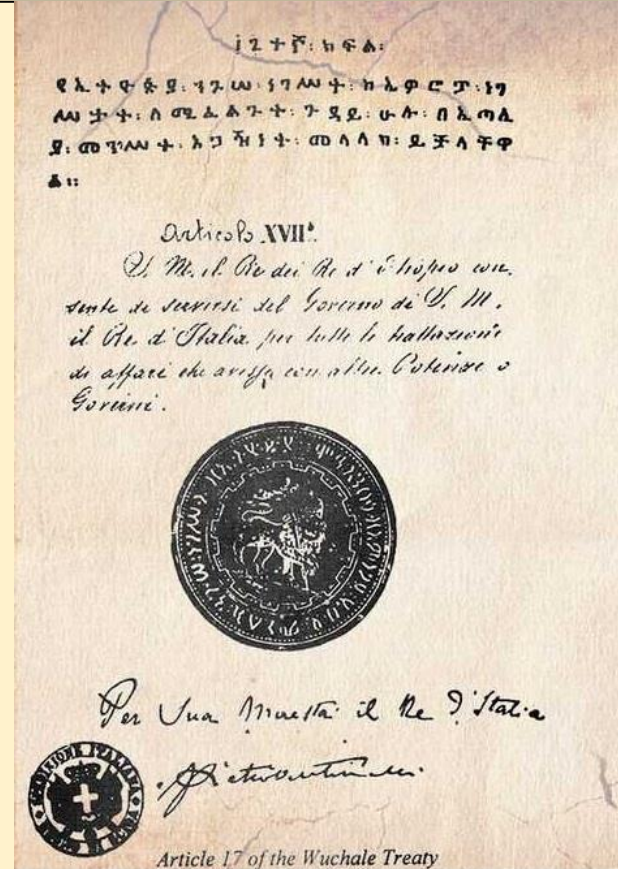 ፲፯ተኛ፡ ክፍል፡
የኢትዮጵያ፡ ንጉሠ፡ ነገሥት፡ ከኤዎሮፓ፡ ነገ
ሥታት፡ ለሚፈልጉት፡ ጉዳይ፡ ሁሉ፡ በኢጣሊ
ያ፡ መንግሥት፡ አጋዥነት፡ መላላክ፡ ይቻላቸዋ
ል።
Articolo XVII°.
S. M. il Re dei Re d'Etiopia con-
sente di servirsi del Governo di S. M.
il Re d'Italia per tutte le trattazioni
di affari che avesse con altre Potenze o
Governi.
Per Sua Maestà il Re d'Italia
Pietro Antonelli
Article 17 of the Wuchale Treaty